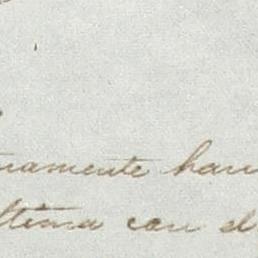 namente han
ltima con el